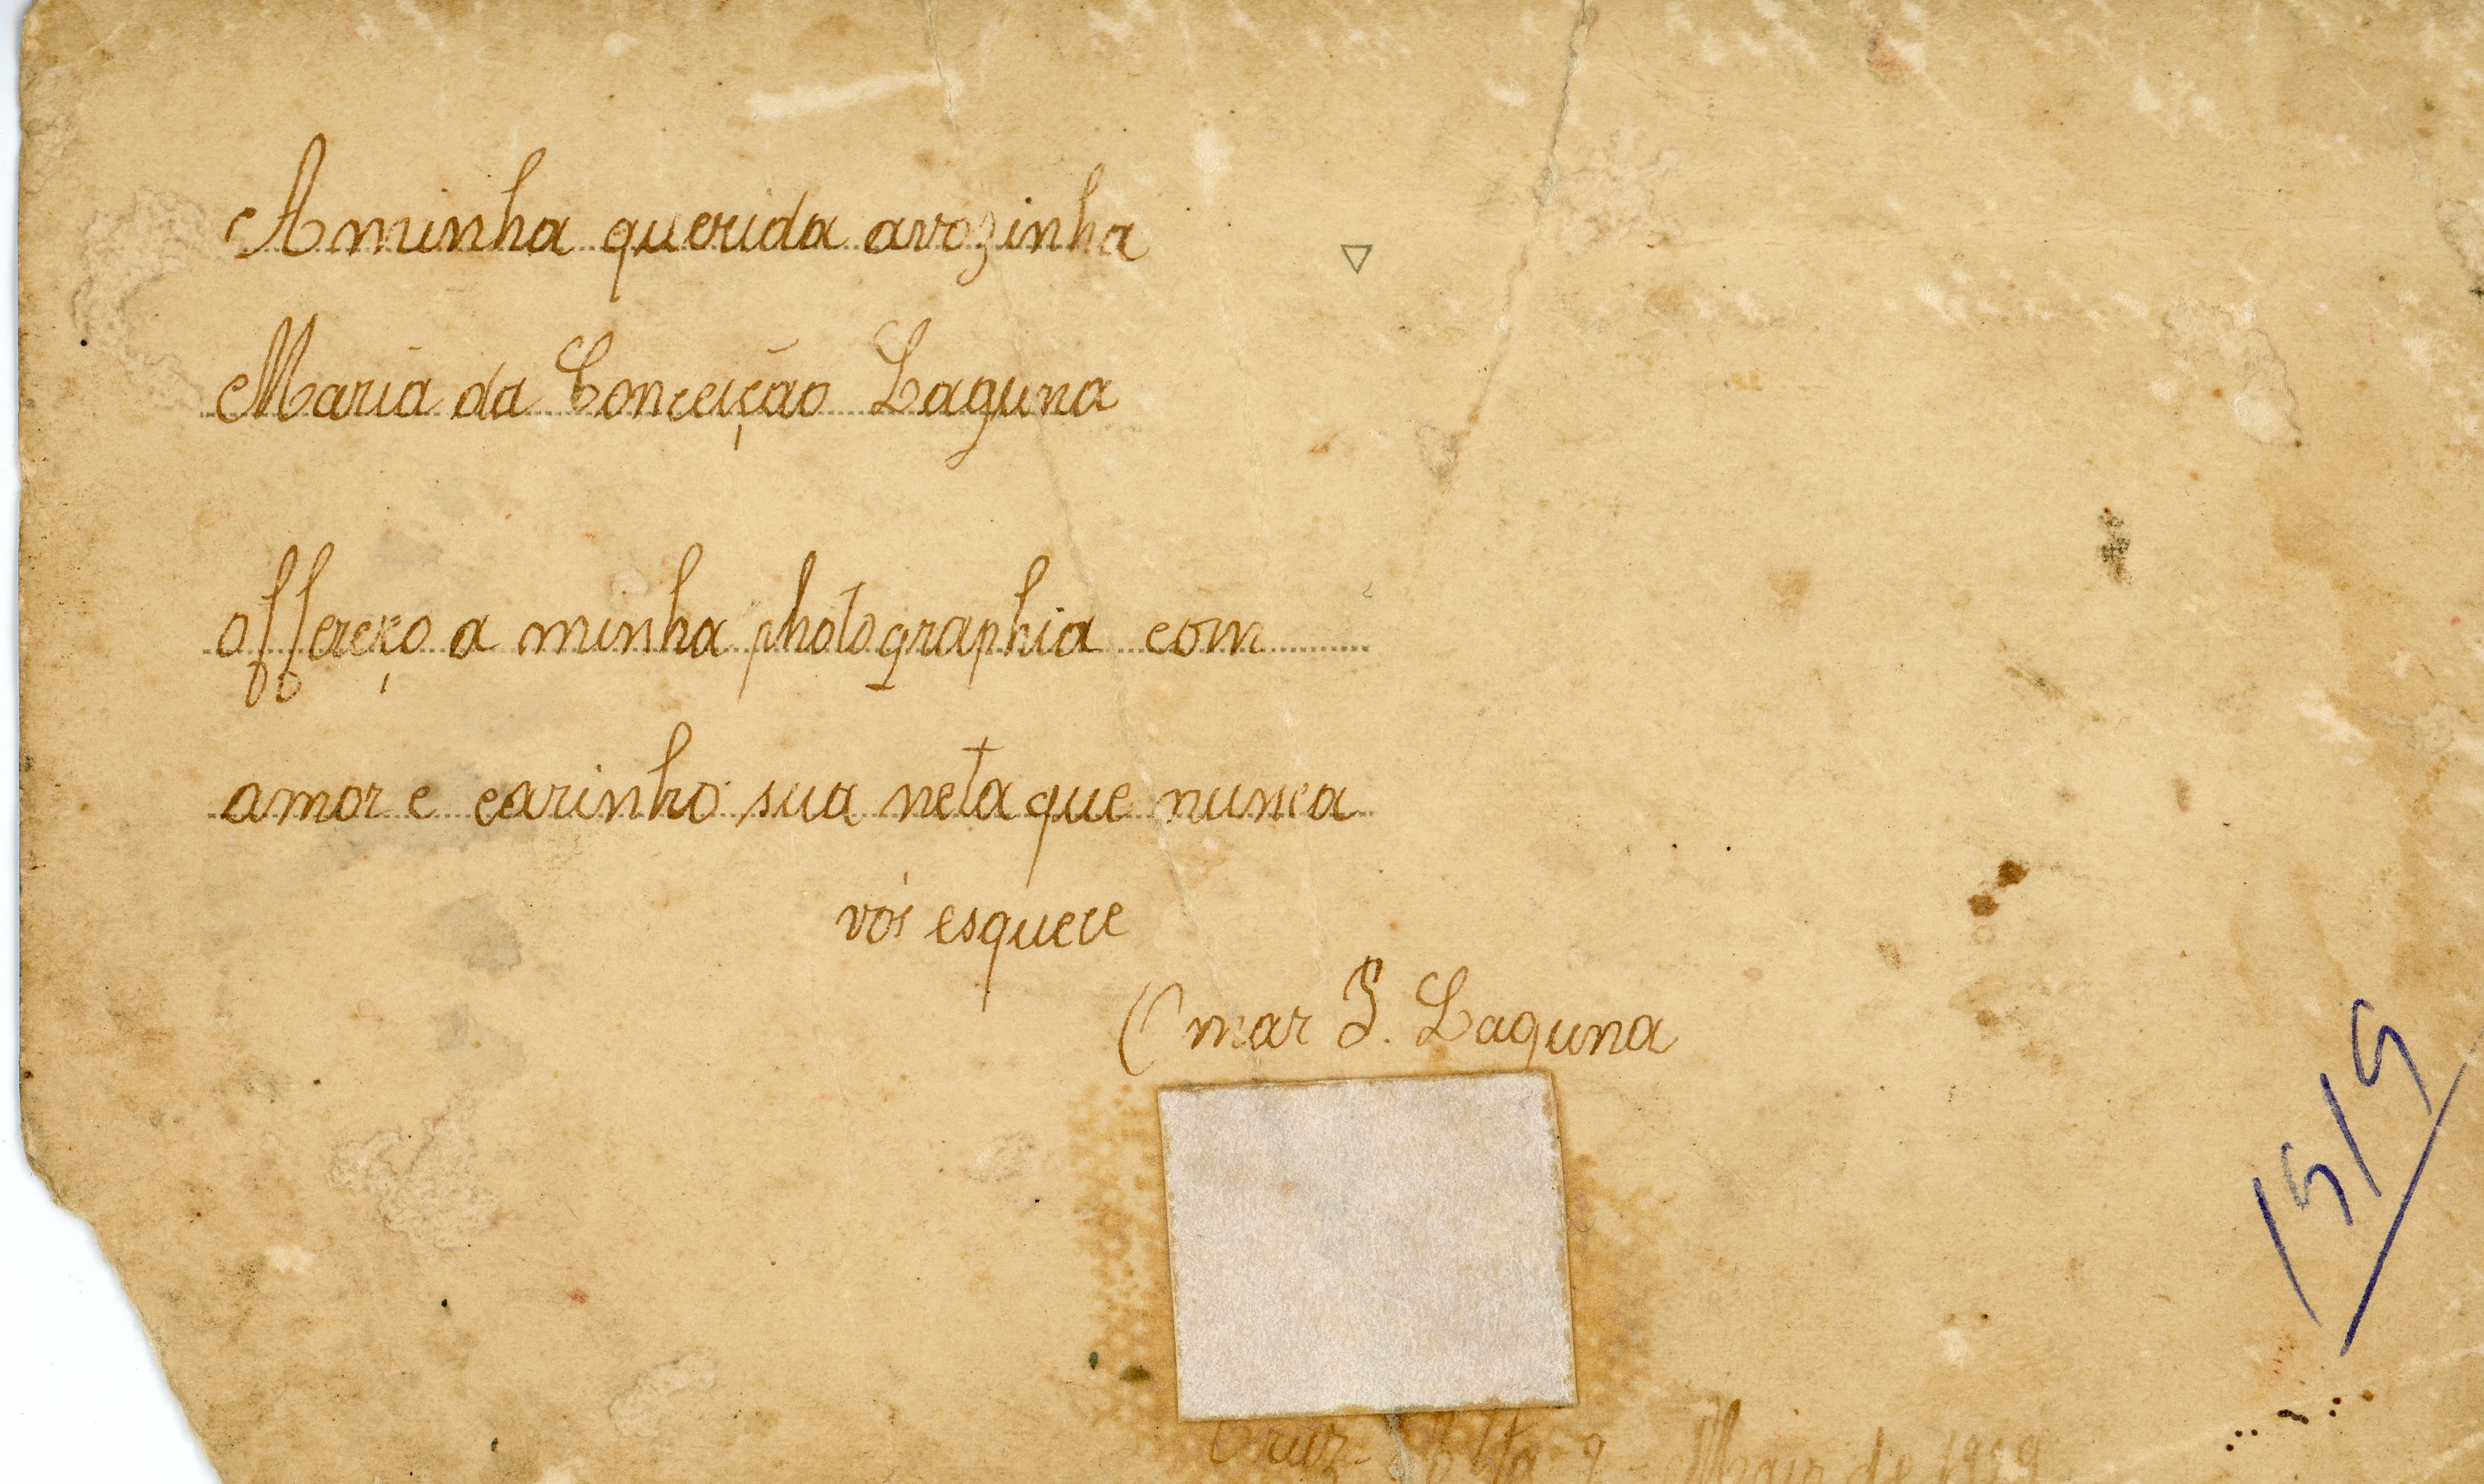 A minha querida avozinha
Maria da Conceição Laguna
offereço a minha photographia com
amor e carinho sua neta que nunca
vós esquece
Omar P. Laguna
1919
Cruz Alta 9 Maio de 1919